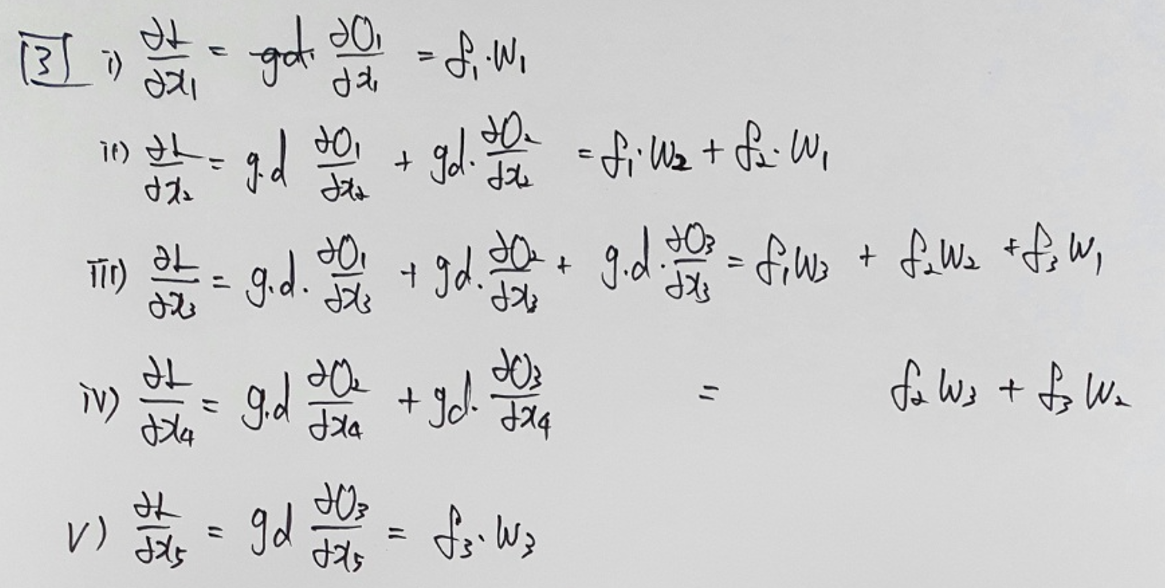 [3] i) ∂L/∂x₁ = gd. ∂O₁/∂x₁ = f₁·W₁
ii) ∂L/∂x₂ = g.d ∂O₁/∂x₂ + gd. ∂O₂/∂x₂ = f₁·W₂ + f₂·W₁
iii) ∂L/∂x₃ = g.d. ∂O₁/∂x₃ + gd. ∂O₂/∂x₃ + g.d. ∂O₃/∂x₃ = f₁W₃ + f₂W₂ + f₃W₁
iv) ∂L/∂x₄ = g.d ∂O₂/∂x₄ + gd. ∂O₃/∂x₄ = f₂W₃ + f₃W₂
v) ∂L/∂x₅ = gd ∂O₃/∂x₅ = f₃·W₃